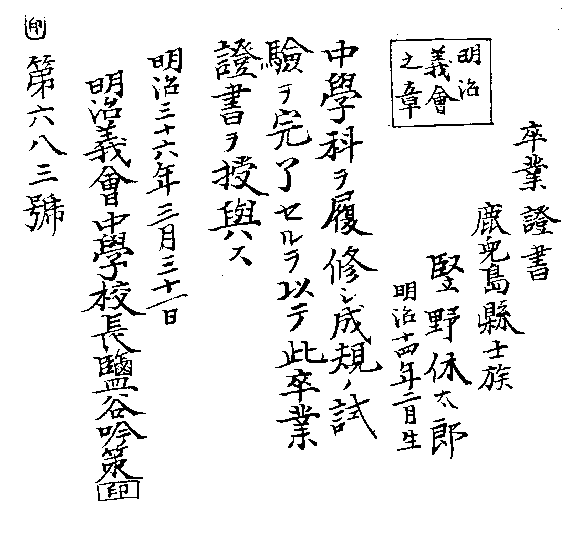 卒業證書
鹿兒島縣士族
竪野休太郎
明治十四年二月生
明治
義會
之章
中學科ヲ履修シ成規ノ試
驗ヲ完了セルヲ以テ此卒業
證書ヲ授與ス
明治三十六年三月三十一日
明治義會中學校長鹽谷吟策印
第六八三號
印